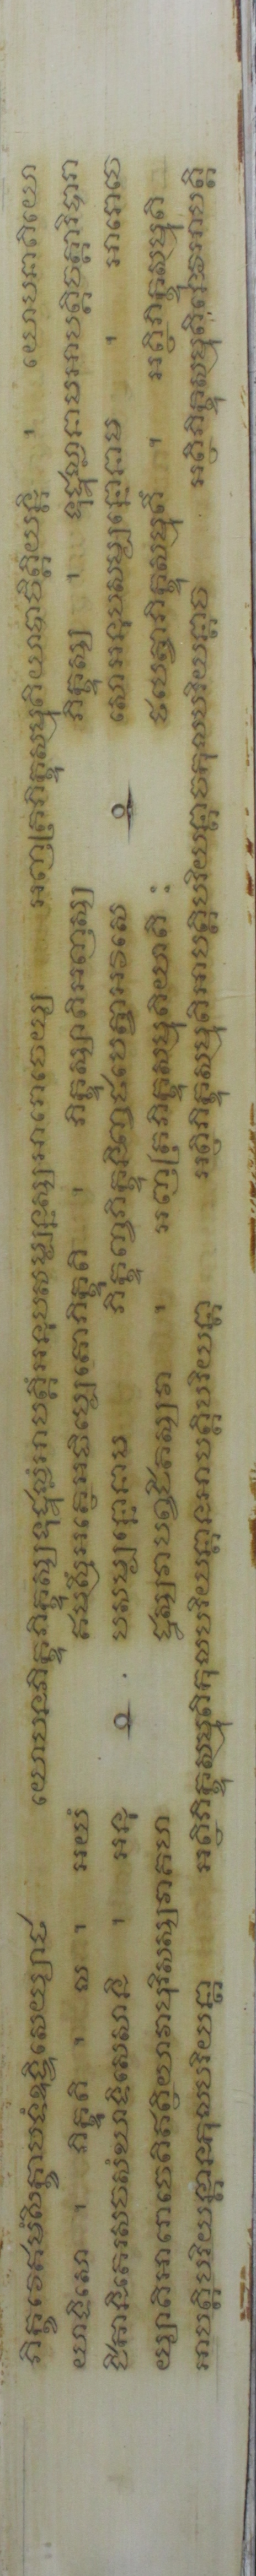 ភិក្ខវេឥមំសិក្ខាបទំឧទ្ទិសេយ្យាថ យោបនភិក្ខុភិក្ខុស្សទុដ្ឋុល្លំអាបត្តិំអនុបសម្បន្នស្សអារោចេយ្យ អញត្រភិក្ខុសម្មុតិយាបាចិត្តិយន្តិ ។ យោបនាតិយោ
យាទិសោ ។ ភិក្ខុតិ ។ ល ។ អយំ ឥមស្មិំអត្ថេអធិប្បេតោភិក្ខុតិ ។ ភិក្ខុស្សាតិអញស្ស ភិក្ខុស្ស ។ ទុដ្ឋុល្លានាមអាបត្តិចត្តារិបារា
ជិកានិតេរសចសំឃាទិសេសានិ ។ អនុ បសម្បន្នោនាម ភិក្ខុញ្ចភិក្ខុនិញ្ចថបេត្វាអវសេ សោអនុបសម្បន្នោនាម ។ អារោចេ
យ្យាតិអារោចេតិឥត្ថិយាវាបុរិសស្សវាគហ ដ្ឋស្សវាបព្វជិតស្សវា ។ អញត្រភិក្ខុសម្មុតិយាតិ ថបេត្វាភិក្ខុសម្មុតិំ ។ អត្ថិភិក្ខុសម្មុតិ
អាបត្តិបរិយន្តានកុលបរិយន្តា អត្ថិភិក្ខុសម្មុតិកុលបរិយន្តានអាបត្តិបរិយន្តា អត្ថិភិក្ខុសម្មុតិអាបត្តិបរិយន្តាចកុលបរិយន្តាច អត្ថិភិក្ខុសម្មុតិនេវអាបត្តិ